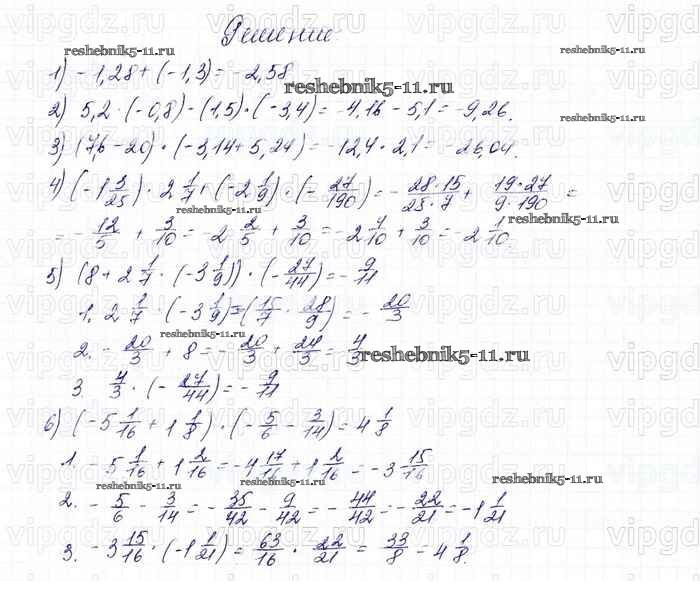 Решение
reshebnik5-11.ru
reshebnik5-11.ru
1) -1,28 + (-1,3) = -2,58
reshebnik5-11.ru
2) 5,2 · (-0,8) - (1,5) · (-3,4) = -4,16 - 5,1 = -9,26.
reshebnik5-11.ru
3) (7,6 - 20) · (-3,14 + 5,24) = -12,4 · 2,1 = -26,04.
4) (-1 3/25) · 2 1/7 + (-2 1/9) · (- 27/190) = - 28·15/25·7 + 19·27/9·190 =
reshebnik5-11.ru
reshebnik5-11.ru
= - 12/5 + 3/10 = -2 2/5 + 3/10 = -2 4/10 + 3/10 = -2 1/10.
5) (8 + 2 1/7 · (-3 1/9)) · (- 27/44) = - 9/11
1. 2 1/7 · (-3 1/9) = (15/7 · 28/9) = - 20/3
reshebnik5-11.ru
2. - 20/3 + 8 = - 20/3 + 24/3 = 4/3
reshebnik5-11.ru
3. 4/3 · (- 27/44) = - 9/11
6) (-5 1/16 + 1 1/8) · (- 5/6 - 3/14) = 4 1/8
1. -5 1/16 + 1 2/16 = -4 17/16 + 1 2/16 = -3 15/16
reshebnik5-11.ru
reshebnik5-11.ru
reshebnik5-11.ru
2. - 5/6 - 3/14 = - 35/42 - 9/42 = - 44/42 = - 22/21 = -1 1/21
3. -3 15/16 · (-1 1/21) = 63/16 · 22/21 = 33/8 - 4 1/8.